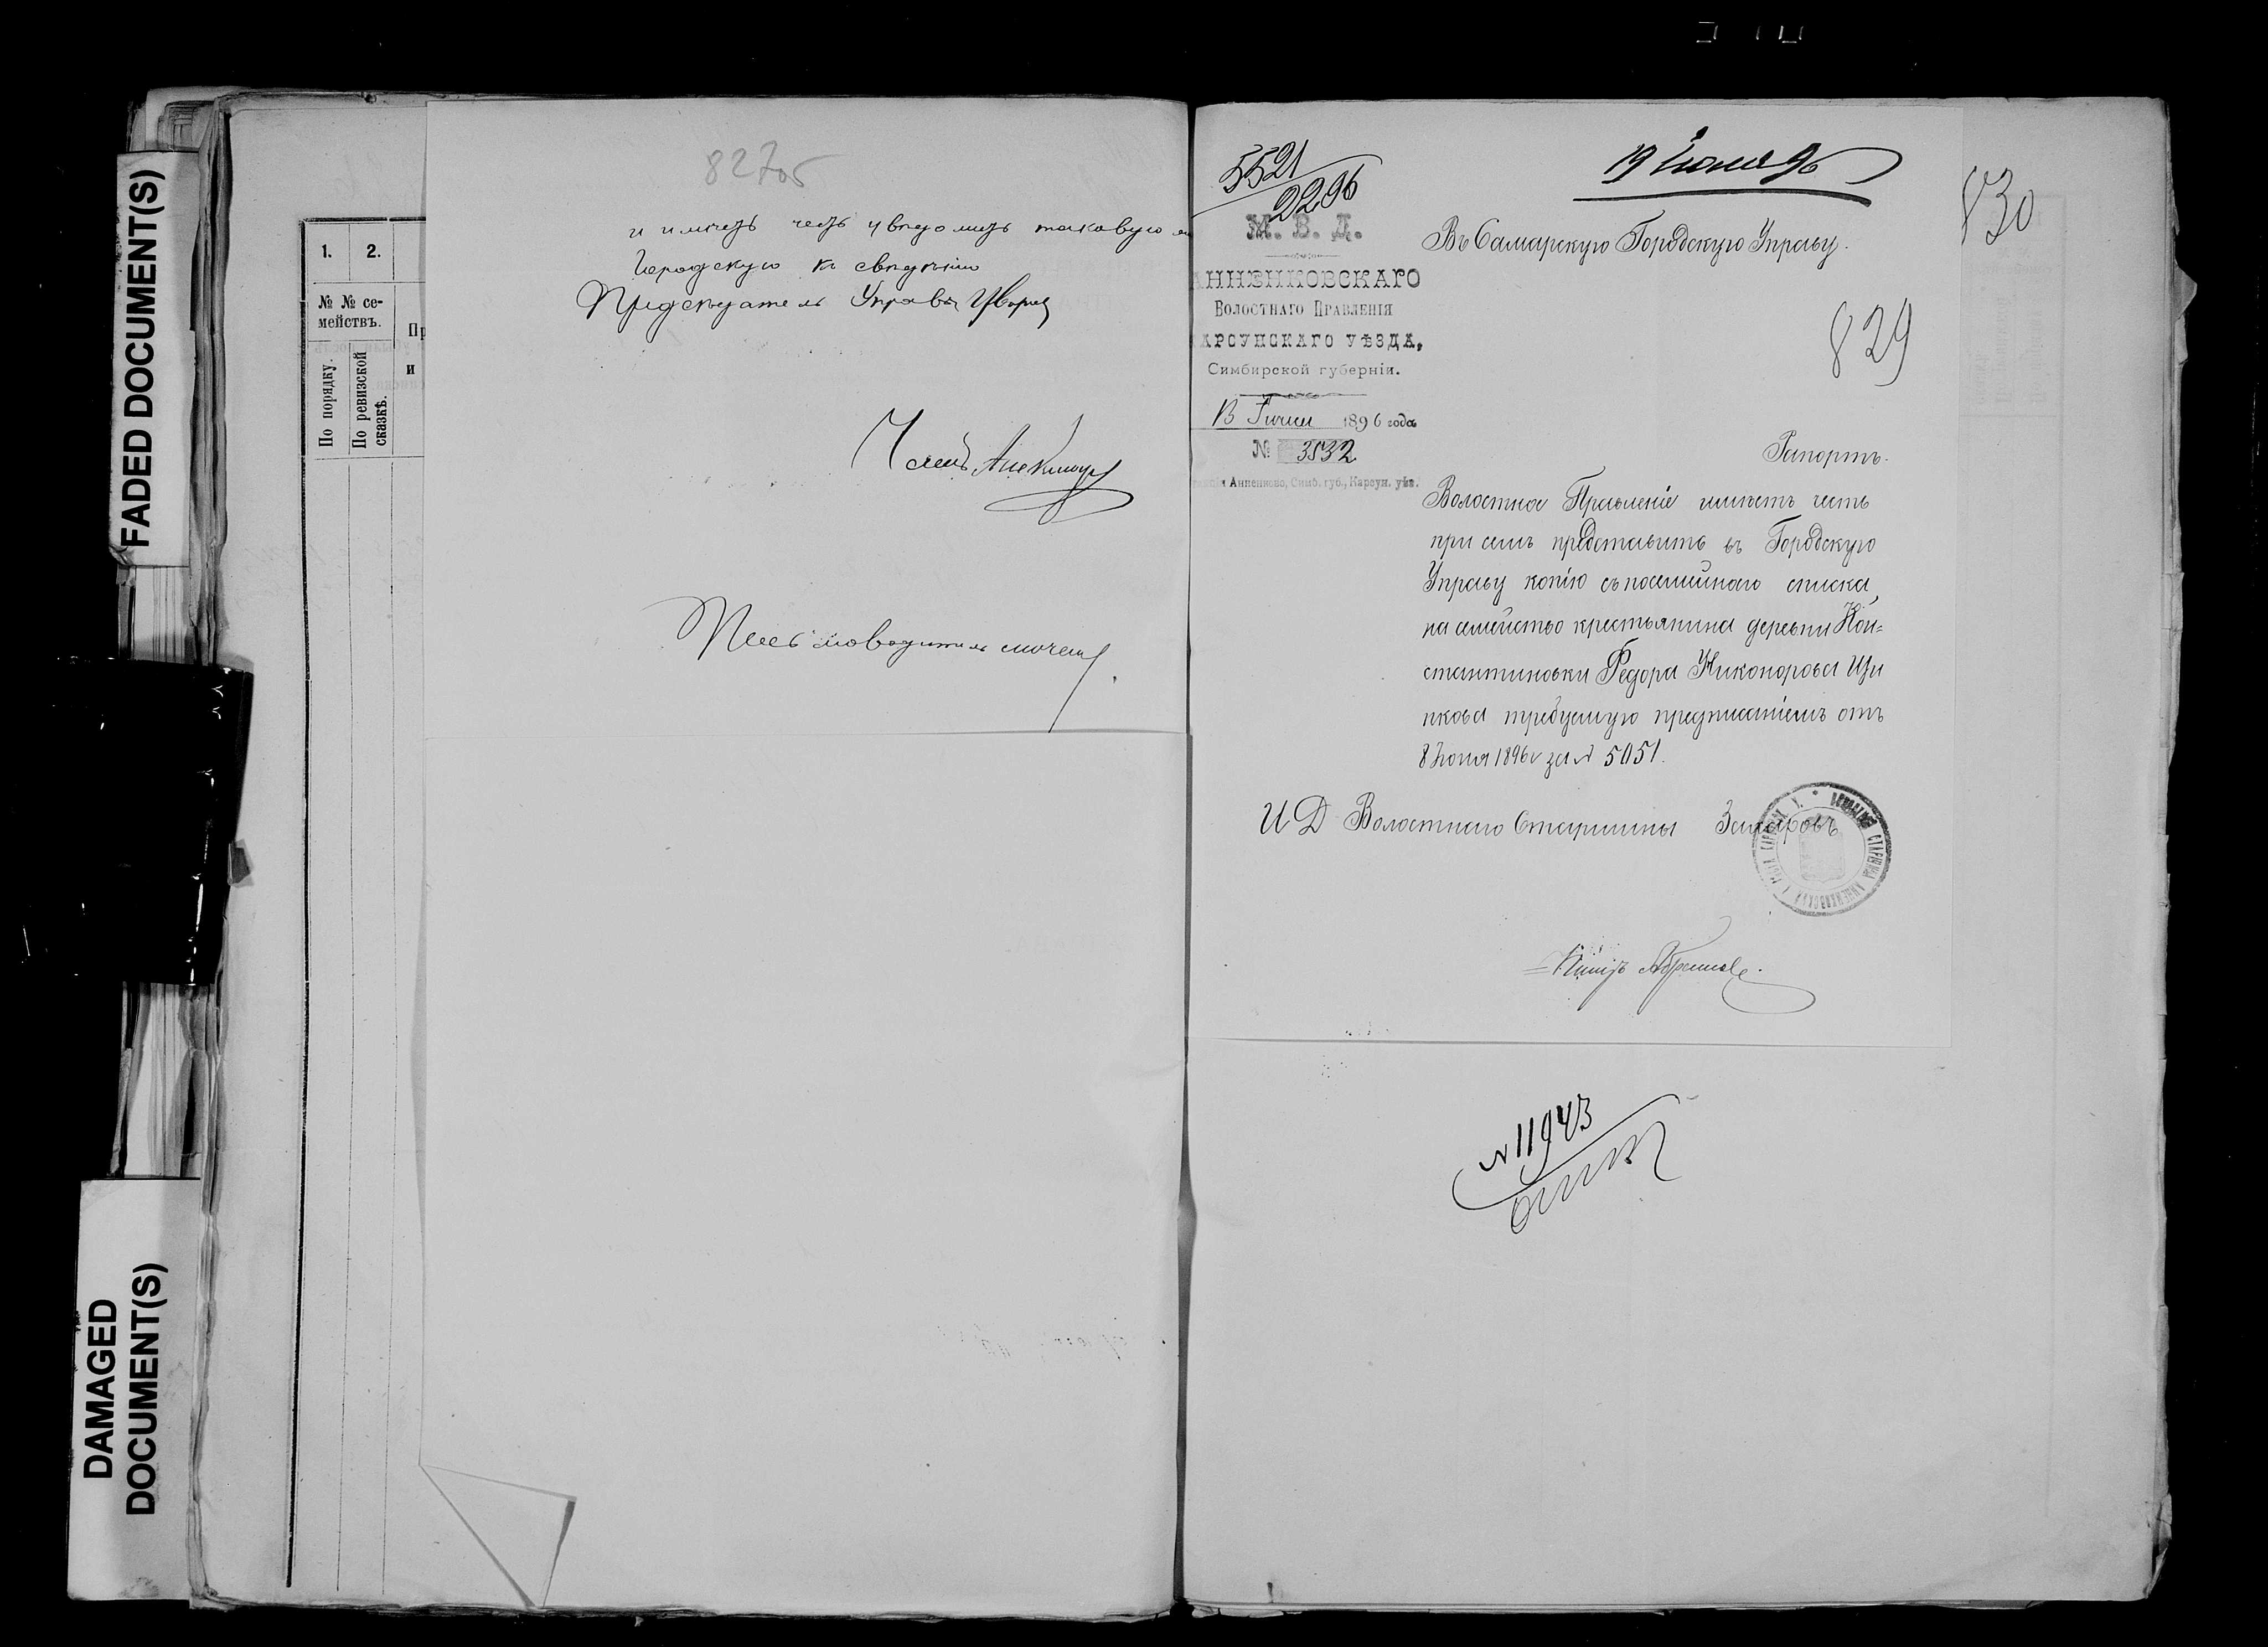 FADED DOCUMENT(S)
DAMAGED
DOCUMENT(S)
1. 2.
№ № се-
мействъ.
Пр
и
По порядку.
По ревизской
сказкѣ.
827об
и имѣетъ честь увѣдомить таковую
Городскую къ свѣдѣнію
Предсѣдатель Управы
Членъ
Письмоводитель
5521
2296
19 Іюня 96
830
М. В. Д.
АННЕНКОВСКАГО
Волостнаго Правленія
АРСУНСКАГО УѢЗДА,
Симбирской губерніи.
13 Іюня 1896 года
№ 3532
Анненково, Симб. губ., Карсун. уѣз.
Въ Самарскую Городскую Управу.
829
Рапортъ.
Волостное Правленіе имѣетъ честь
при семъ представить въ Городскую
Управу копію съ посемейнаго списка,
на семейство крестьянина деревни Кон=
стантиновки Федора Никонорова Ци
пкова требуемую предписаніемъ отъ
8 Іюня 1896 г за № 5051.
И Д Волостнаго Старшины
№ 11943